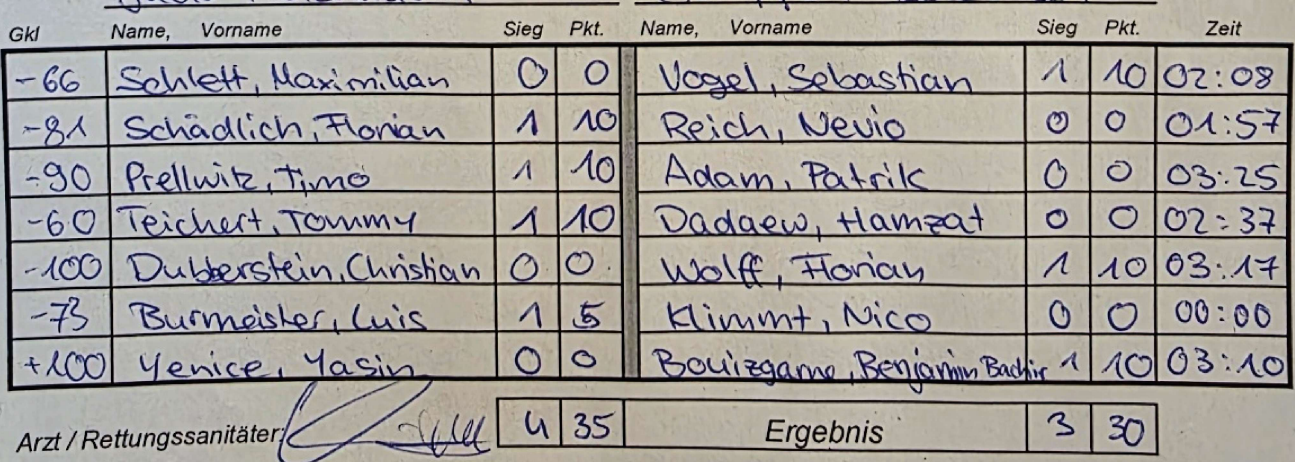 Gkl Name, Vorname Sieg Pkt. Name, Vorname Sieg Pkt. Zeit
-66 Schlett, Maximilian 0 0 Vogel, Sebastian 1 10 02:08
-81 Schädlich, Florian 1 10 Reich, Nevio 0 0 01:57
-90 Prellwitz, Timo 1 10 Adam, Patrik 0 0 03:25
-60 Teichert, Tommy 1 10 Dadaew, Hamzat 0 0 02:37
-100 Dubberstein, Christian 0 0 Wolff, Florian 1 10 03:17
-73 Burmeister, Luis 1 5 Klimmt, Nico 0 0 00:00
+100 Yenice, Yasin 0 0 Bouizgarne, Benjamin Bachir 1 10 03:10
Arzt / Rettungssanitäter: 4 35 Ergebnis 3 30